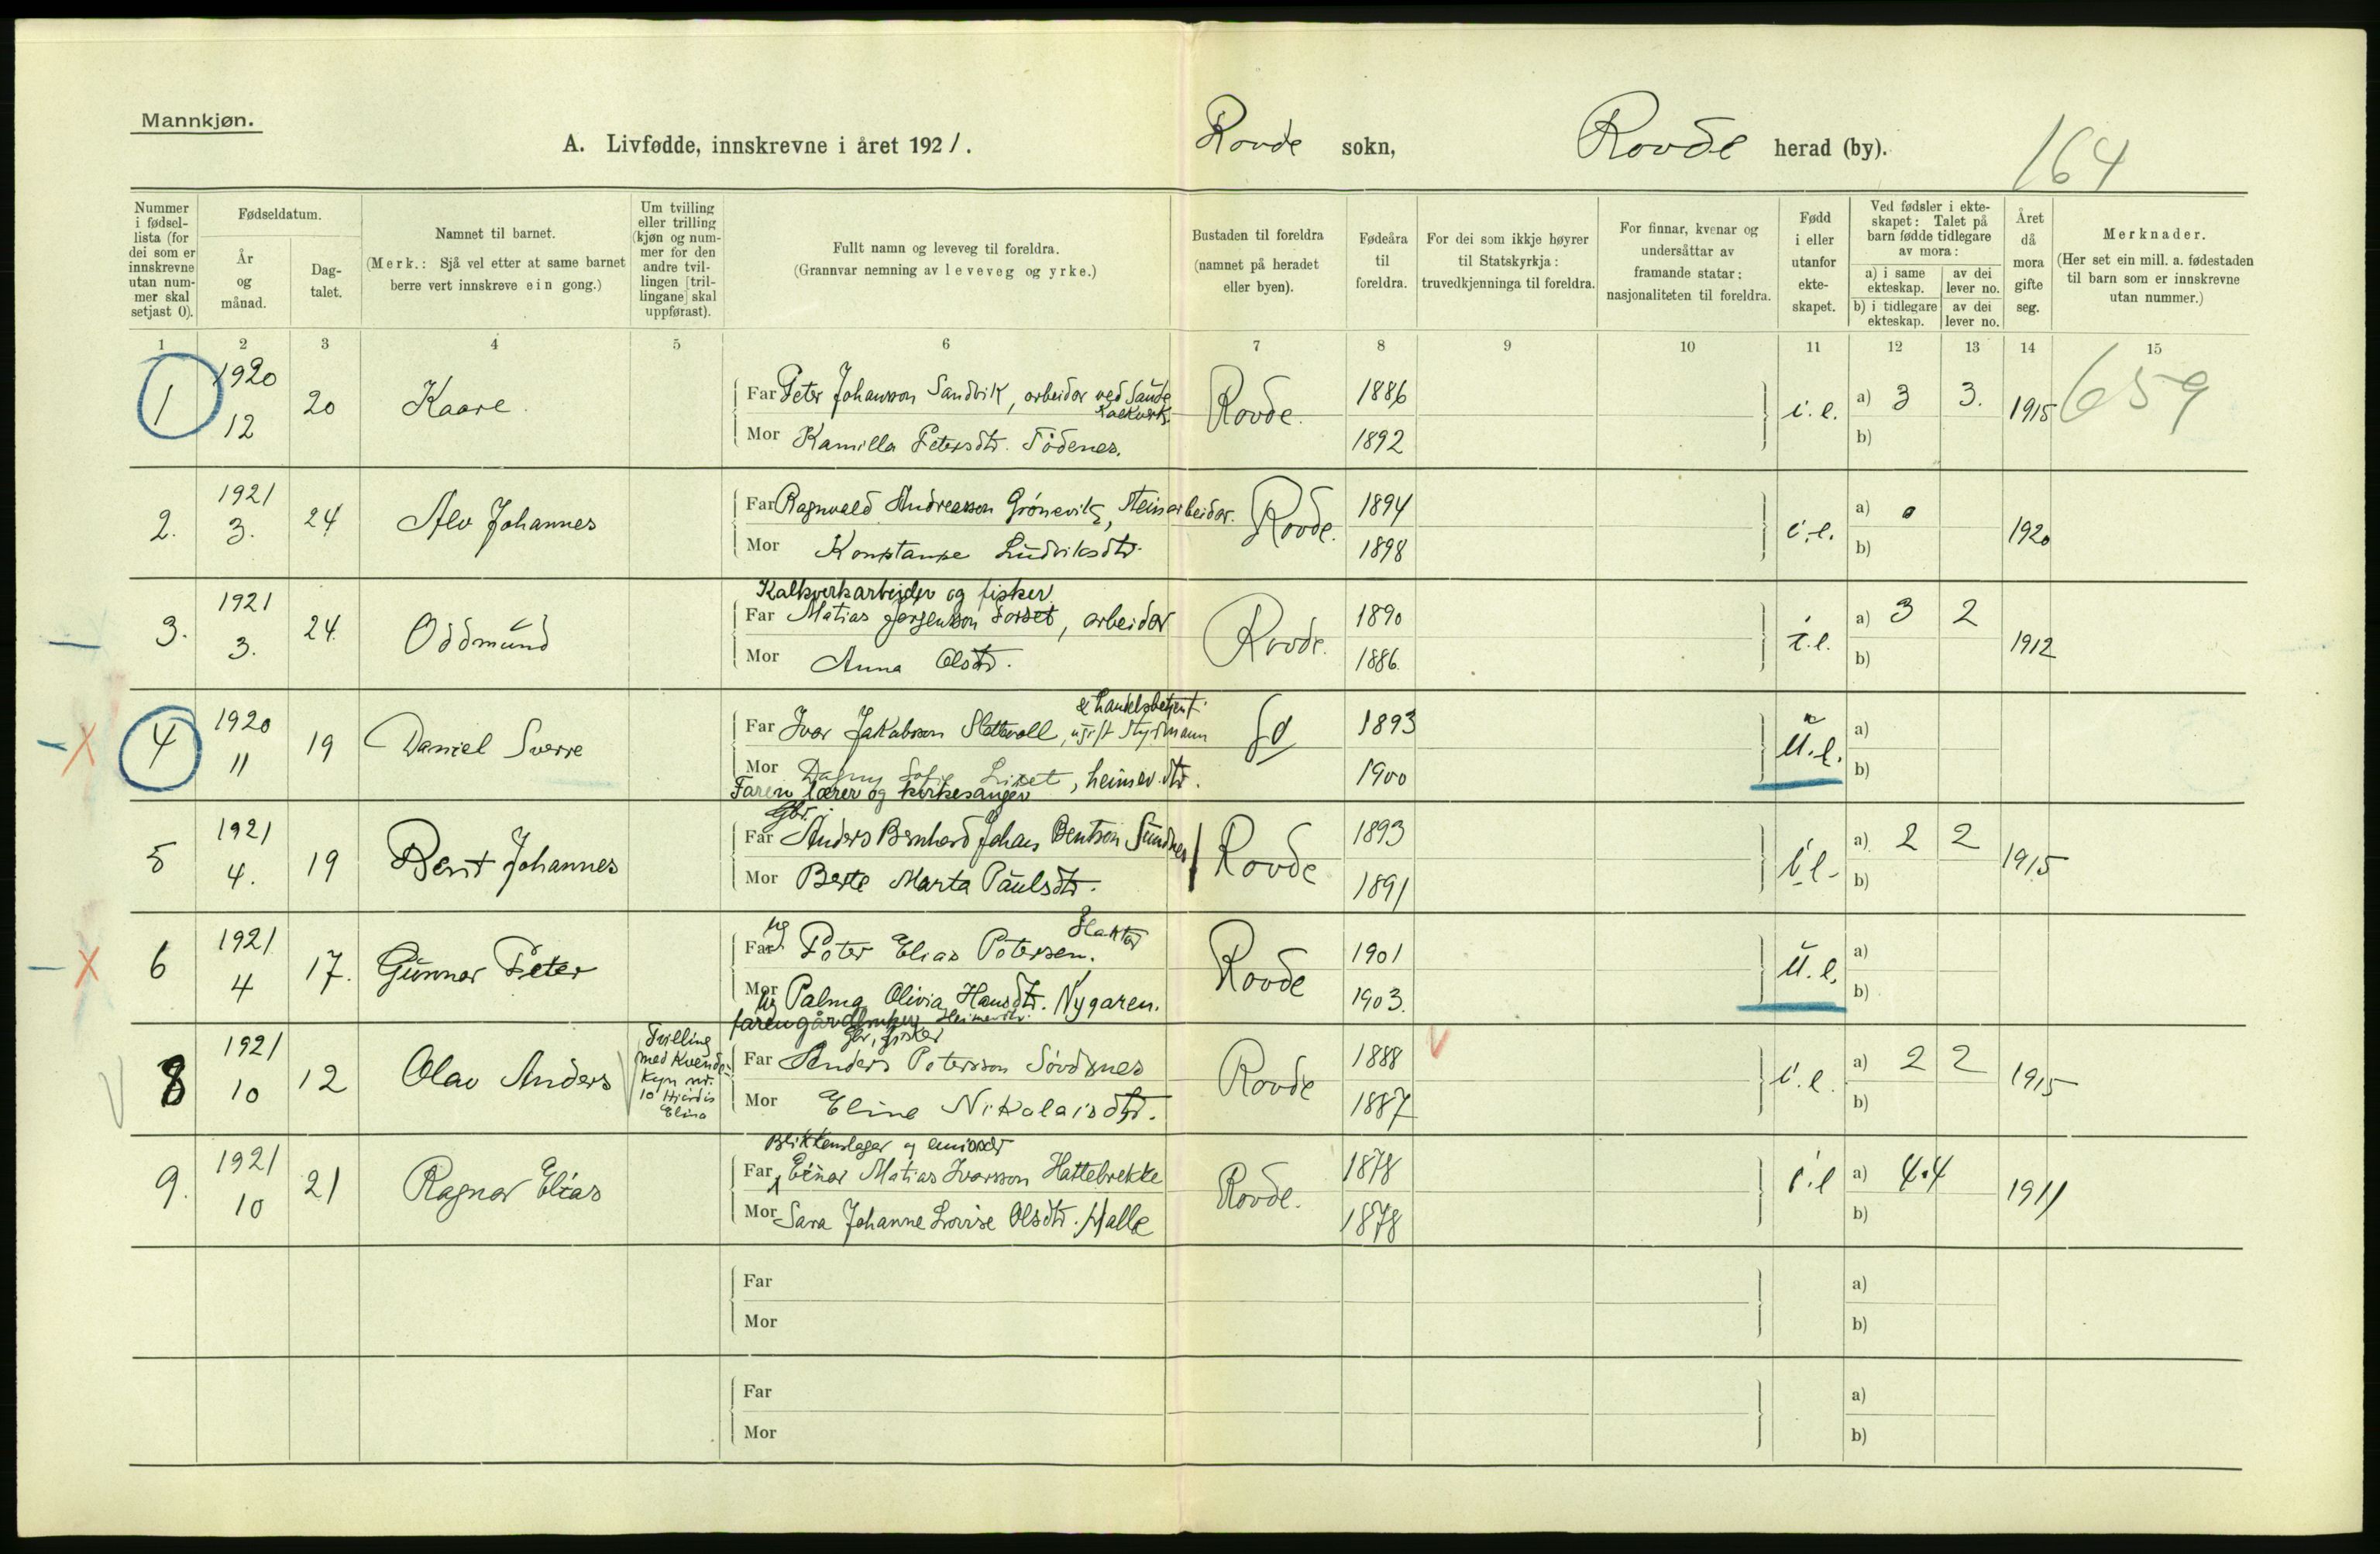 Mannkjøn.
A. Livfødde, innskrevne i året 1921. Rovde sokn, Rovde herad (by). 164
Nummer i fødsel-lista (for dei som er innskrevne utan num-mer skal setjast 0).
Fødseldatum.
År og månad.
Dag-talet.
Namnet til barnet.
(Merk.: Sjå vel etter at same barnet berre vert innskreve ein gong.)
Um tvilling eller trilling (kjøn og num-mer for den andre tvil-lingen [tril-lingane] skal uppførast).
Fullt namn og leveveg til foreldra.
(Grannvar nemning av leveveg og yrke.)
Bustaden til foreldra (namnet på heradet eller byen).
Fødeåra til foreldra.
For dei som ikkje høyrer til Statskyrkja: truvedkjenninga til foreldra.
For finnar, kvenar og undersåttar av framande statar: nasjonaliteten til foreldra.
Fødd i eller utanfor ekte-skapet.
Ved fødsler i ekte-skapet: Talet på barn fødde tidlegare av mora:
a) i same ekteskap. av dei lever no.
b) i tidlegare ekteskap. av dei lever no.
Året då mora gifte seg.
Merknader.
(Her set ein mill. a. fødestaden til barn som er innskrevne utan nummer.)
1 2 3 4 5 6 7 8 9 10 11 12 13 14 15
1 1920 12 20 Kaare. Far Peter Johansson Sandvik, arbeidar ved Sande kalkverk. Rovde. 1886 i.e. a) 3 3. 1915 659
Mor Kamilla Petersdtr. Tødenes. 1892 b)
2. 1921 3. 24 Alv Johannes Far Ragnvald Andreasson Grønevik, steinarbeidar. Rovde. 1894 i.e. a) 0 1920
Mor Konstanse Ludviksdtr. 1898 b)
Kalkverkarbeider og fisker
3. 1921 3. 24. Oddmund Far Matias Jørgensson Sorset, arbeidar Rovde. 1890 i.e. a) 3 2 1912
Mor Anna Olsdtr. 1886. b)
& handelsbetjent.
4 1920 11 19 Daniel Sverre Far Ivar Jakobson Slettevoll, ugift styrmann 1893 u.e. a)
Mor Dagny Sofie Liset, heimev. dtr. 1900 b)
Faren lærer og kirkesanger
Gbr.
5 1921 4. 19 Bernt Johannes Far Anders Bernhard Johan Bentson Sundnes Rovde 1893 i.e. a) 2 2 1915
Mor Berte Marta Paulsdtr. 1891 b)
6 1921 4 17. Gunnar Peter Far ug Peter Elias Petersen. Rovde 1901 u.e. a)
Mor ug Palma Olivia Hansdtr. Nygaren. 1903. b)
faren gårdbruker Heimevdtr.
Gbr, fisker
8 1921 10 12 Olav Anders Tvilling med Kvende-kyn nr. 10 Hjørdis Elina Far Anders Petersson Søvdsnes Rovde 1888 i.e. a) 2 2 1915
Mor Eline Nikolaisdtr. 1887 b)
Blikkenslager og emissær
9. 1921 10 21 Ragnar Elias Far Einar Matias Ivarsson Hattebrekke Rovde. 1878 i.e a) 4 4 1911
Mor Sara Johanne Lovise Olsdtr. Halle 1878 b)
Far a)
Mor b)
Far a)
Mor b)